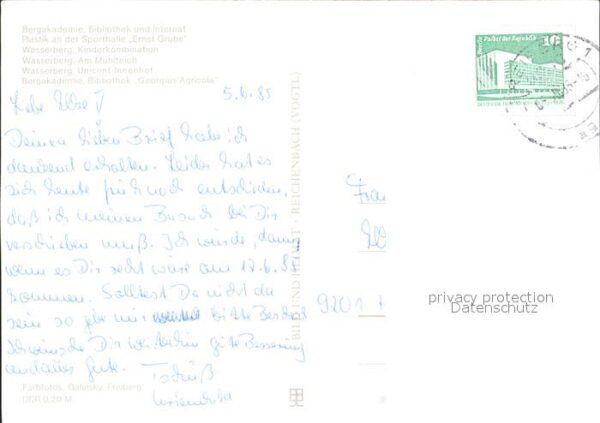 Bergakademie, Bibliothek und Internat
Plastik an der Sporthalle „Ernst Grube"
Wasserberg, Kinderkombination
Wasserberg, Am Mühlteich
Wasserberg, Unicent-Innenhof
Bergakademie, Bibliothek „Georgius Agricola"
5.6.85
Liebe Ilse!
Deinen lieben Brief habe ich
dankend erhalten. Leider hat es
sich heute früh noch entschieden,
daß ich meinen Besuch bei Dir
verschieben muß. Ich würde, dann
wenn es Dir recht wäre am 12.6.85
kommen. Solltest Du nicht da
sein so gebe mir bitte Bescheid
Ich wünsche Dir weiterhin gute Besserung
und alles Gute. Tschüß
Farbfotos: Galinsky, Freiberg
DDR 0,20 M
BILD UND HEIMAT · REICHENBACH (VOGTL)
Palast der Republik
10
DDR
Frau
9201
privacy protection
Datenschutz